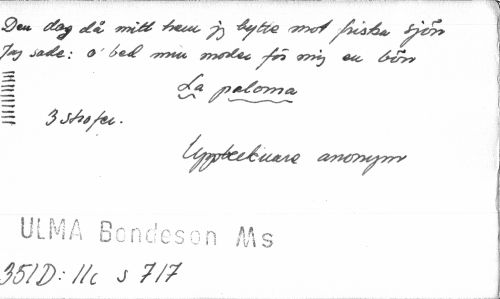 Den dag då mitt hem jg bytte mot friska sjön
Jag sade: o' bed min moder för mig en bön
La paloma
3 strofer.
Upptecknare anonym
ULMA Bondeson Ms
351D: 11c s 717